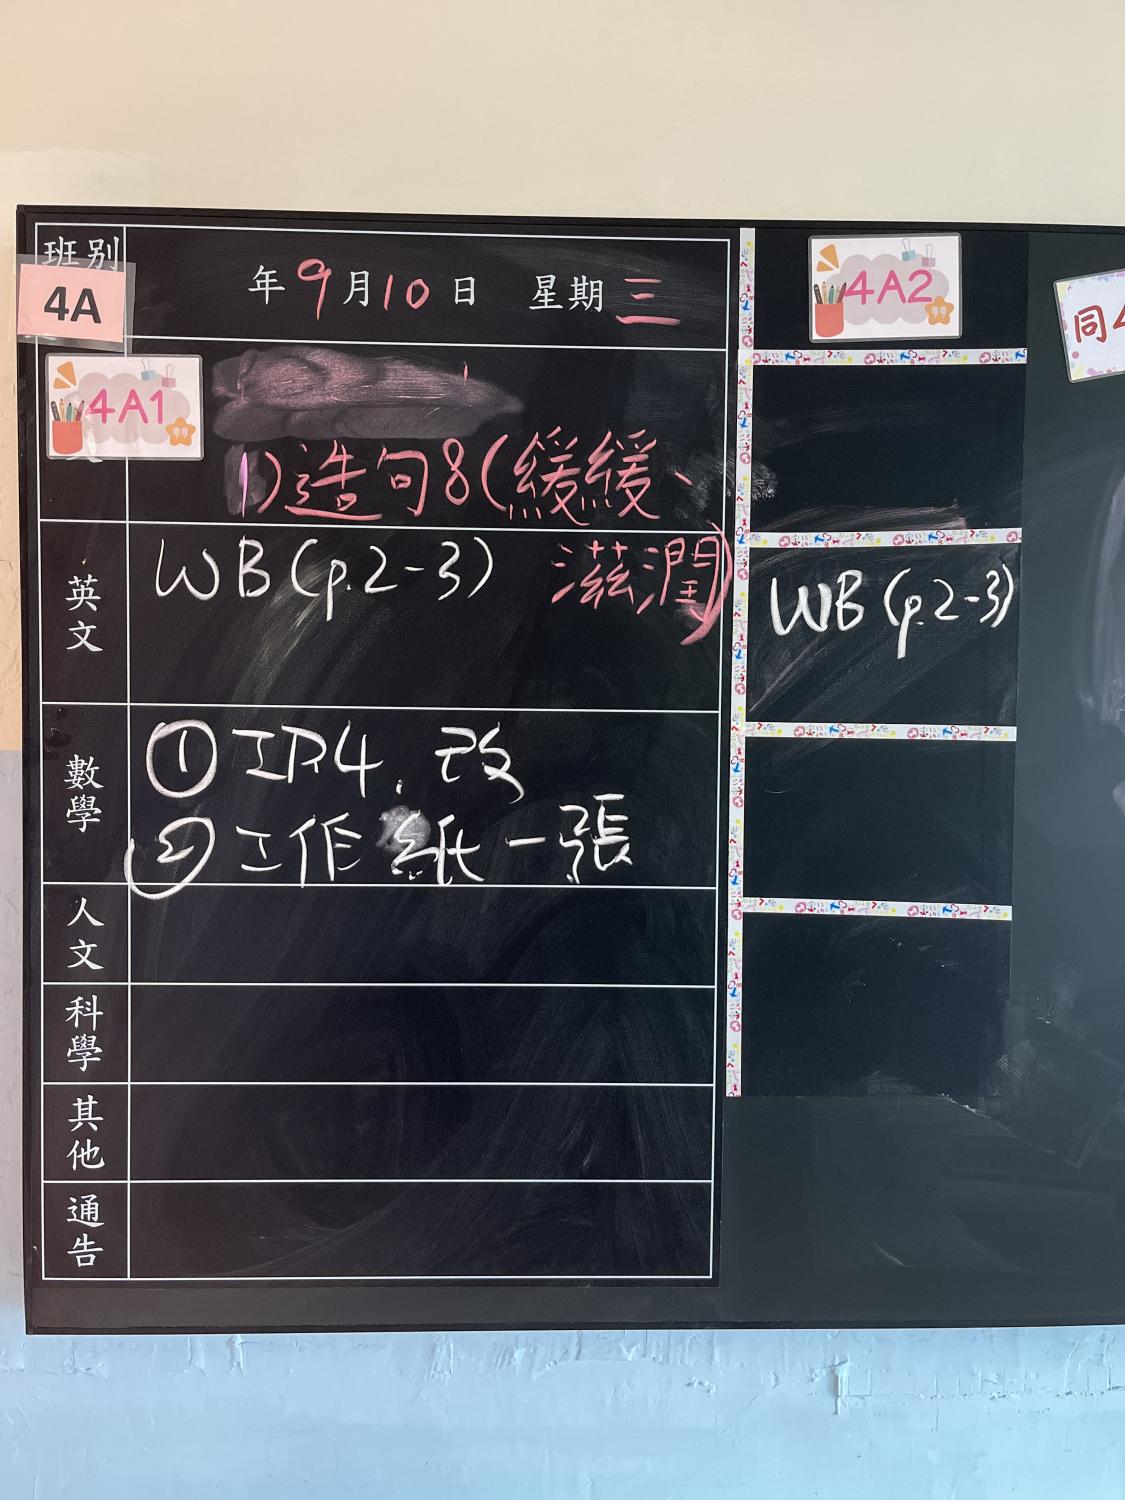 班別
4A
年9月10日 星期三
4A1
1)造句8(緩緩、
滋潤)
英文
WB(p.2-3)
數學
① IP4. 改
② 工作紙一張
人文
科學
其他
通告
4A2
WB(p.2-3)
同4